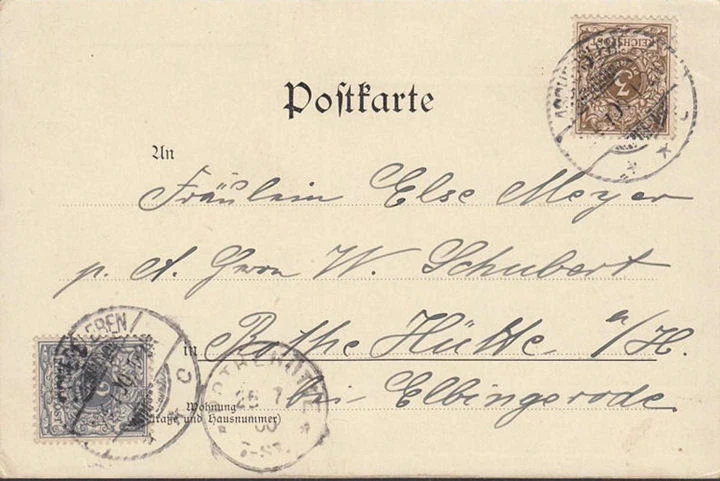 Postkarte
An
Fräulein Else Meyer
p. A. Herrn W. Schubert
in Rothe Hütte a/H.
bei Elbingerode
Wohnung
(Straße und Hausnummer)
REICHSPOST
3
2
ROTHEHÜTTE
26 7
00
C
C